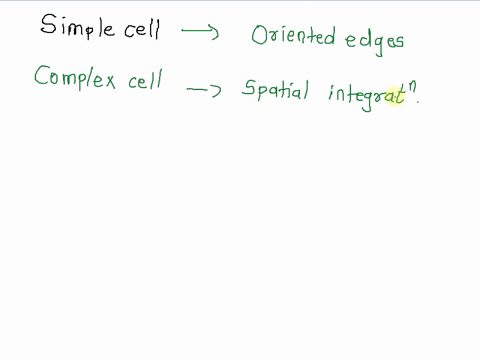 Simple cell → Oriented edges
Complex cell → Spatial integratⁿ.